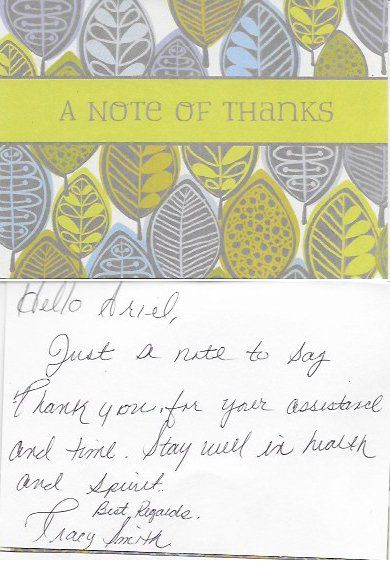 A NOTE OF THANKS
Hello Ariel,
Just a note to say
Thank you, for your assistance
and time. Stay well in health
and spirit.
Best Regards.
Tracy Smith